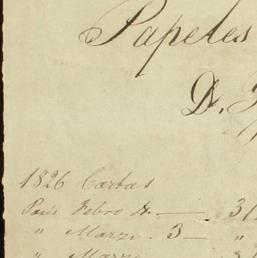 Papeles
D.
1826 Cartas
Paris Febro 4. — 31
" Marzo. 3 — "
" Marzo